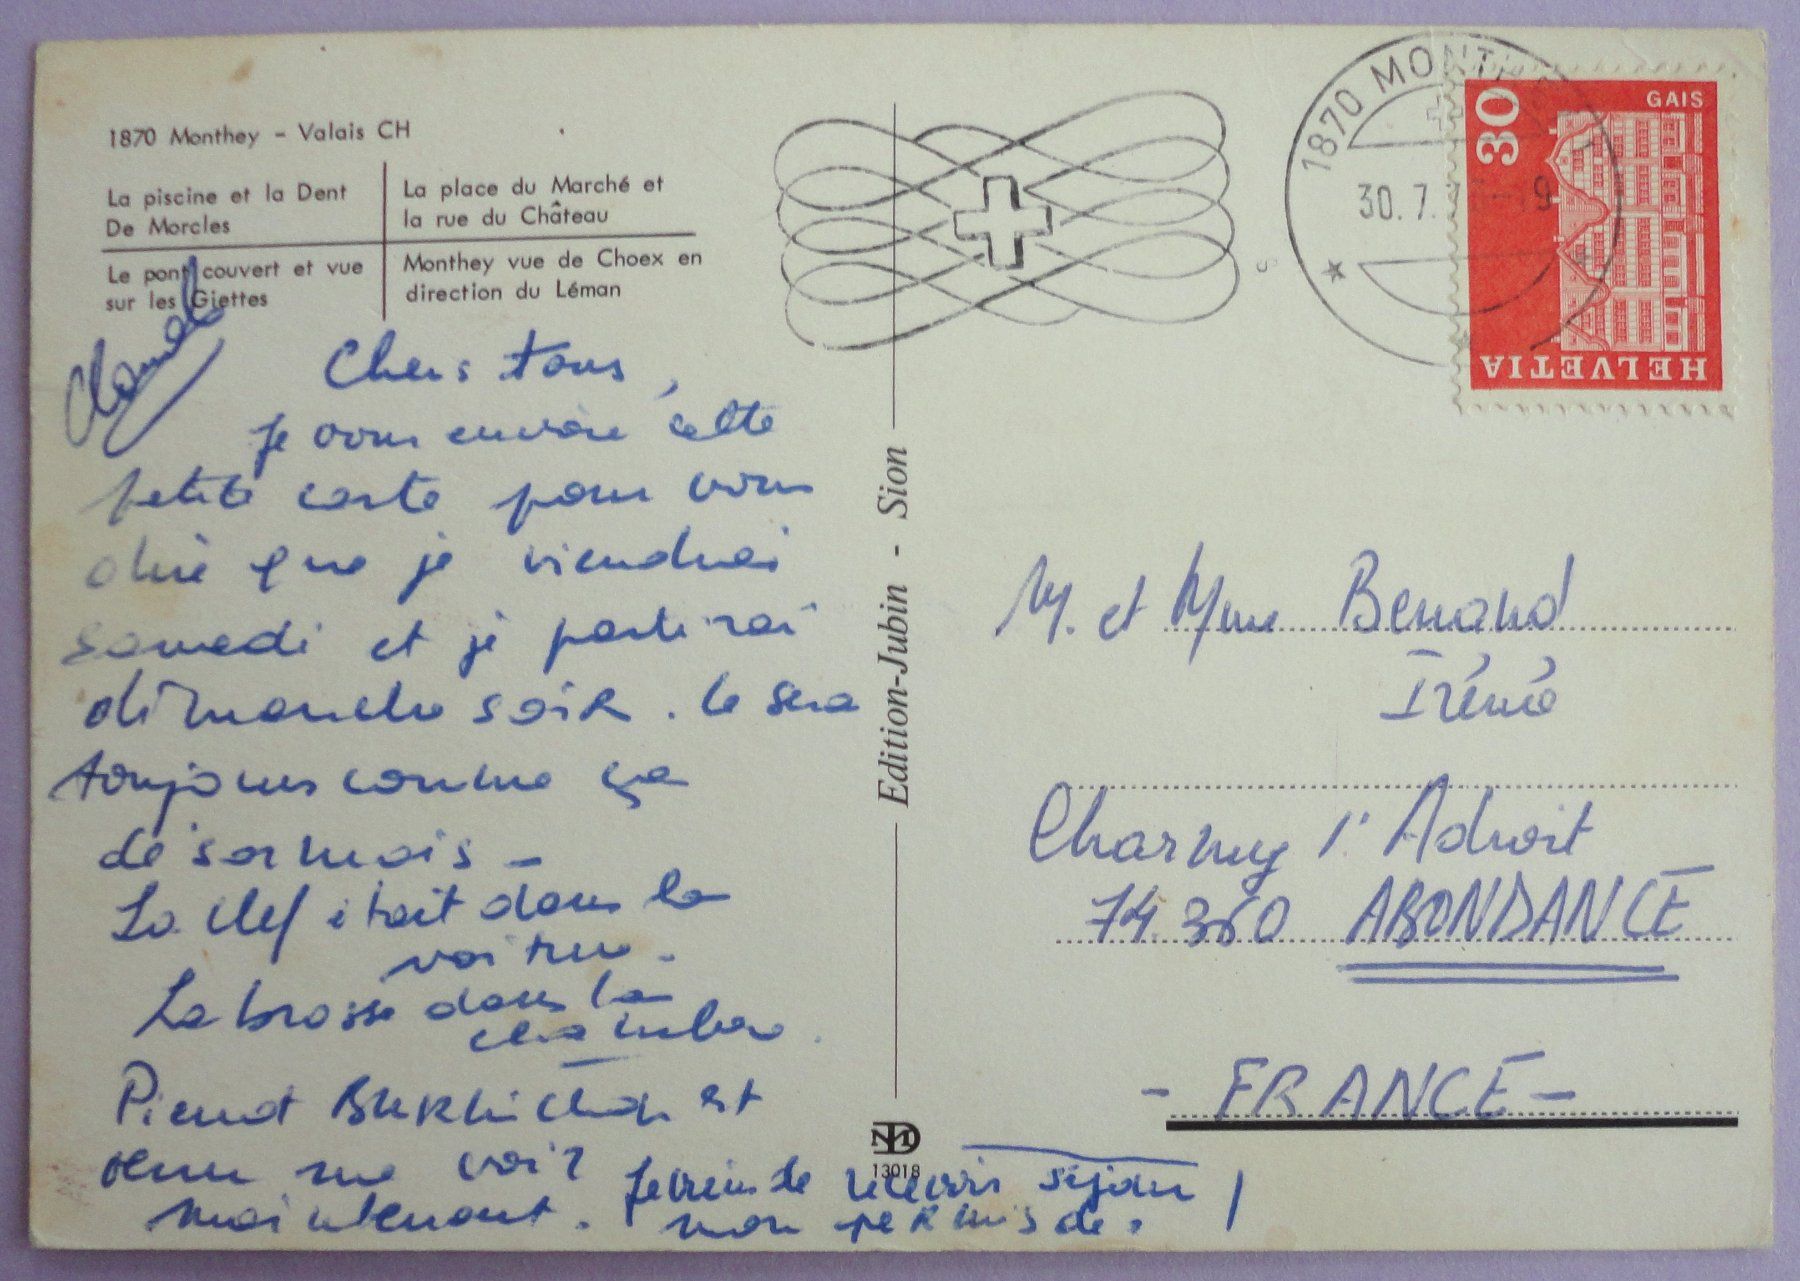 1870 Monthey – Valais CH
La piscine et la Dent
De Morcles
La place du Marché et
la rue du Château
Le pont couvert et vue
sur les Giettes
Monthey vue de Choex en
direction du Léman
Chers tous,
Je vous envoie cette
petite carte pour vous
dire que je viendrai
samedi et je partirai
dimanche soir. Ce sera
toujours comme ça
désormais –
La clef était dans la
voiture.
La brosse dans la
chambre.
Pierrot est
venu me voir
maintenant.
Je viens de recevoir
mon permis de séjour !
Edition-Jubin - Sion
13018
1870 MONTHEY
30. 7.
30
GAIS
HELVETIA
M. et Mme Benand
Irénée
Charmy l'Adroit
74.360 ABONDANCE
- FRANCE -